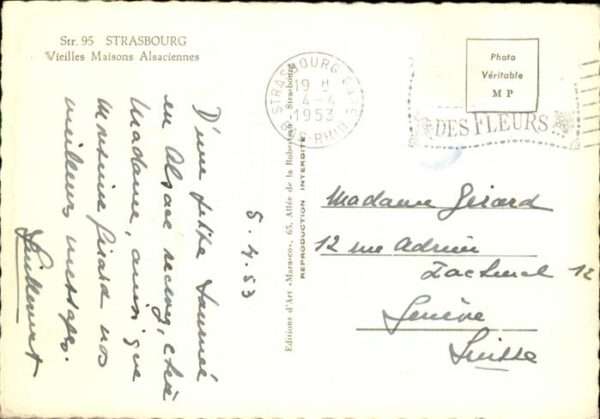 Str. 95 STRASBOURG
Vieilles Maisons Alsaciennes
5.4.53
D'une petite tournée
en Alsace recevez, chère
Madame, ainsi que
Monsieur Girard nos
meilleurs messages.
Editions d'Art «Marasco», 65, Allée de la Robertsau - Strasbourg
REPRODUCTION INTERDITE
STRASBOURG GARE
19 H
4-4
1953
BAS-RHIN
Photo
Véritable
M P
DES FLEURS
Madame Girard
12 rue Adrien
Lachenal 12
Genève
Suisse